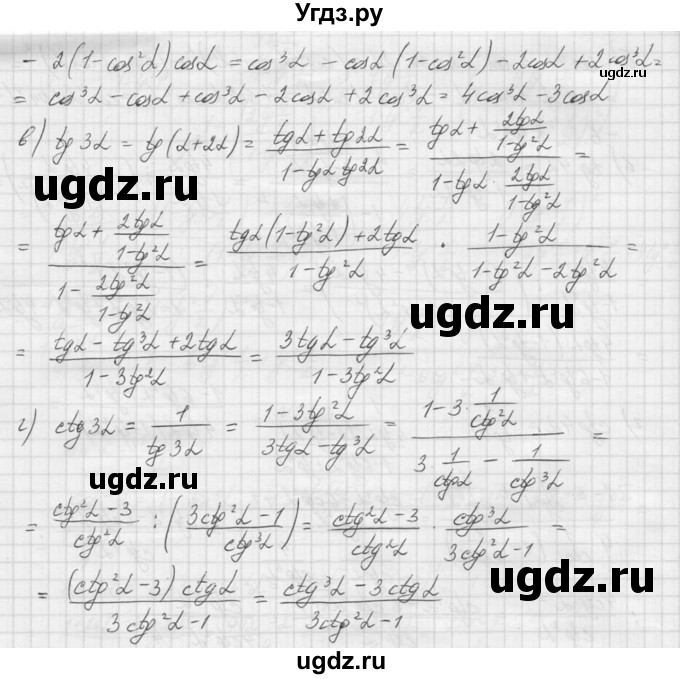 Угдз.ру
- 2(1-cos²α)cosα = cos³α - cosα(1-cos²α) - 2cosα + 2cos³α =
©ugdz.ru
= cos³α - cosα + cos³α - 2cosα + 2cos³α = 4cos³α - 3cosα
в) tg3α = tg(α+2α) = (tgα + tg2α)/(1 - tgα tg2α) = (tgα + 2tgα/(1-tg²α))/(1 - tgα · 2tgα/(1-tg²α)) =
ugdz.ru
= (tgα + 2tgα/(1-tg²α))/(1 - 2tg²α/(1-tg²α)) = (tgα(1-tg²α) + 2tgα)/(1-tg²α) · (1-tg²α)/(1-tg²α-2tg²α) =
ugdz.ru
= (tgα - tg³α + 2tgα)/(1-3tg²α) = (3tgα - tg³α)/(1-3tg²α)
г) ctg3α = 1/tg3α = (1-3tg²α)/(3tgα - tg³α) = (1-3·1/ctg²α)/(3 1/ctgα - 1/ctg³α) =
ugdz.ru
= (ctg²α-3)/ctg²α : ((3ctg²α-1)/ctg³α) = (ctg²α-3)/ctg²α · ctg³α/(3ctg²α-1) =
ugdz.ru
= (ctg²α-3)ctgα/(3ctg²α-1) = (ctg³α - 3ctgα)/(3ctg²α-1)
ugdz.ru
ugdz.ru